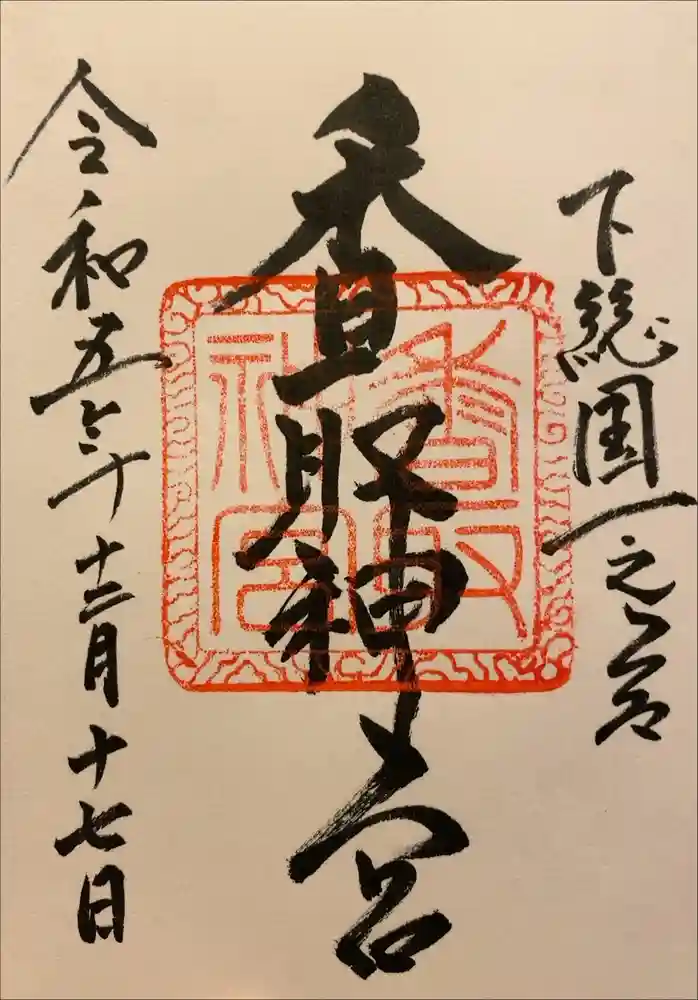 下総国一之宮
香取神宮
香取神宮
令和五年十二月十七日